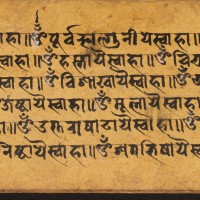 हा॥ॐपूर्वफाल्गुनीयेस्वा
हा॥ॐहस्तायैस्वाहा॥ॐचि
हा॥ॐविशाखायैस्वाहा॥ॐ
ष्ठायैस्वाहा॥ॐमूलायैस्वाहा
हा॥ॐउत्तराषाढायैस्वाहा॥
निष्ठायैस्वाहा॥ॐशतभिषायैस्